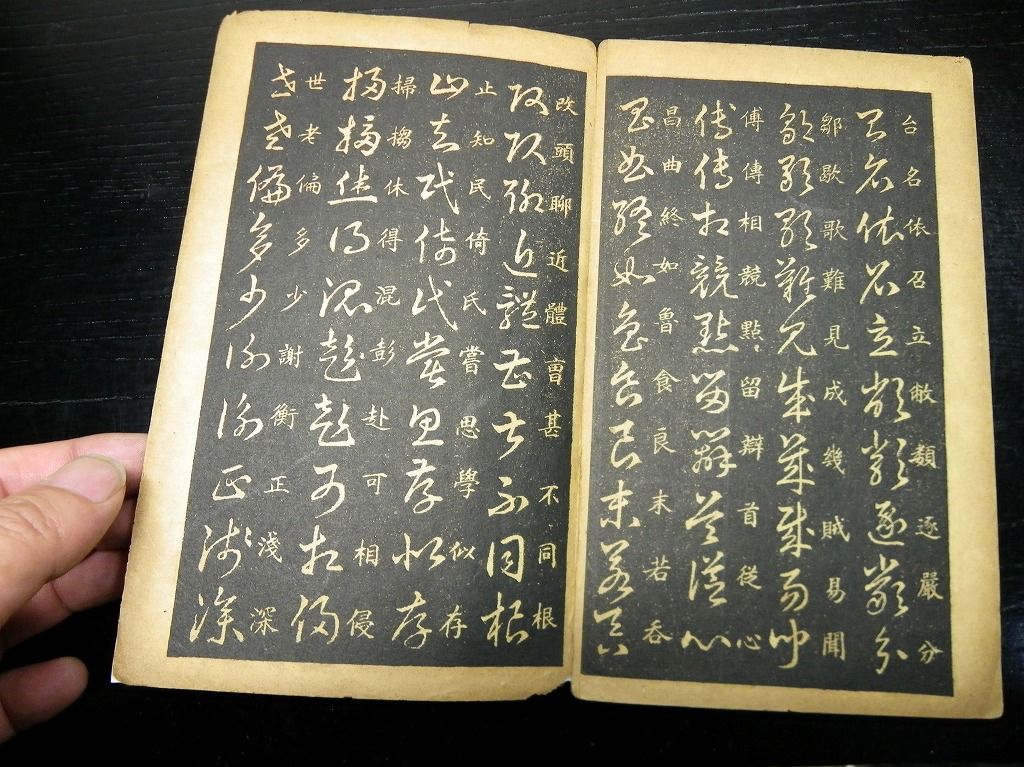 台名依召立敝類逐嚴分
鄒歇歌難見成幾賊易聞
傅傳相競點留辯首從心
昌曲終如魯食良末若吞
改頭聊近體曹甚不同根
止知民倚氏嘗思學似存
掃搊休得混彭赴可相侵
世老偏多少謝衡正淺深